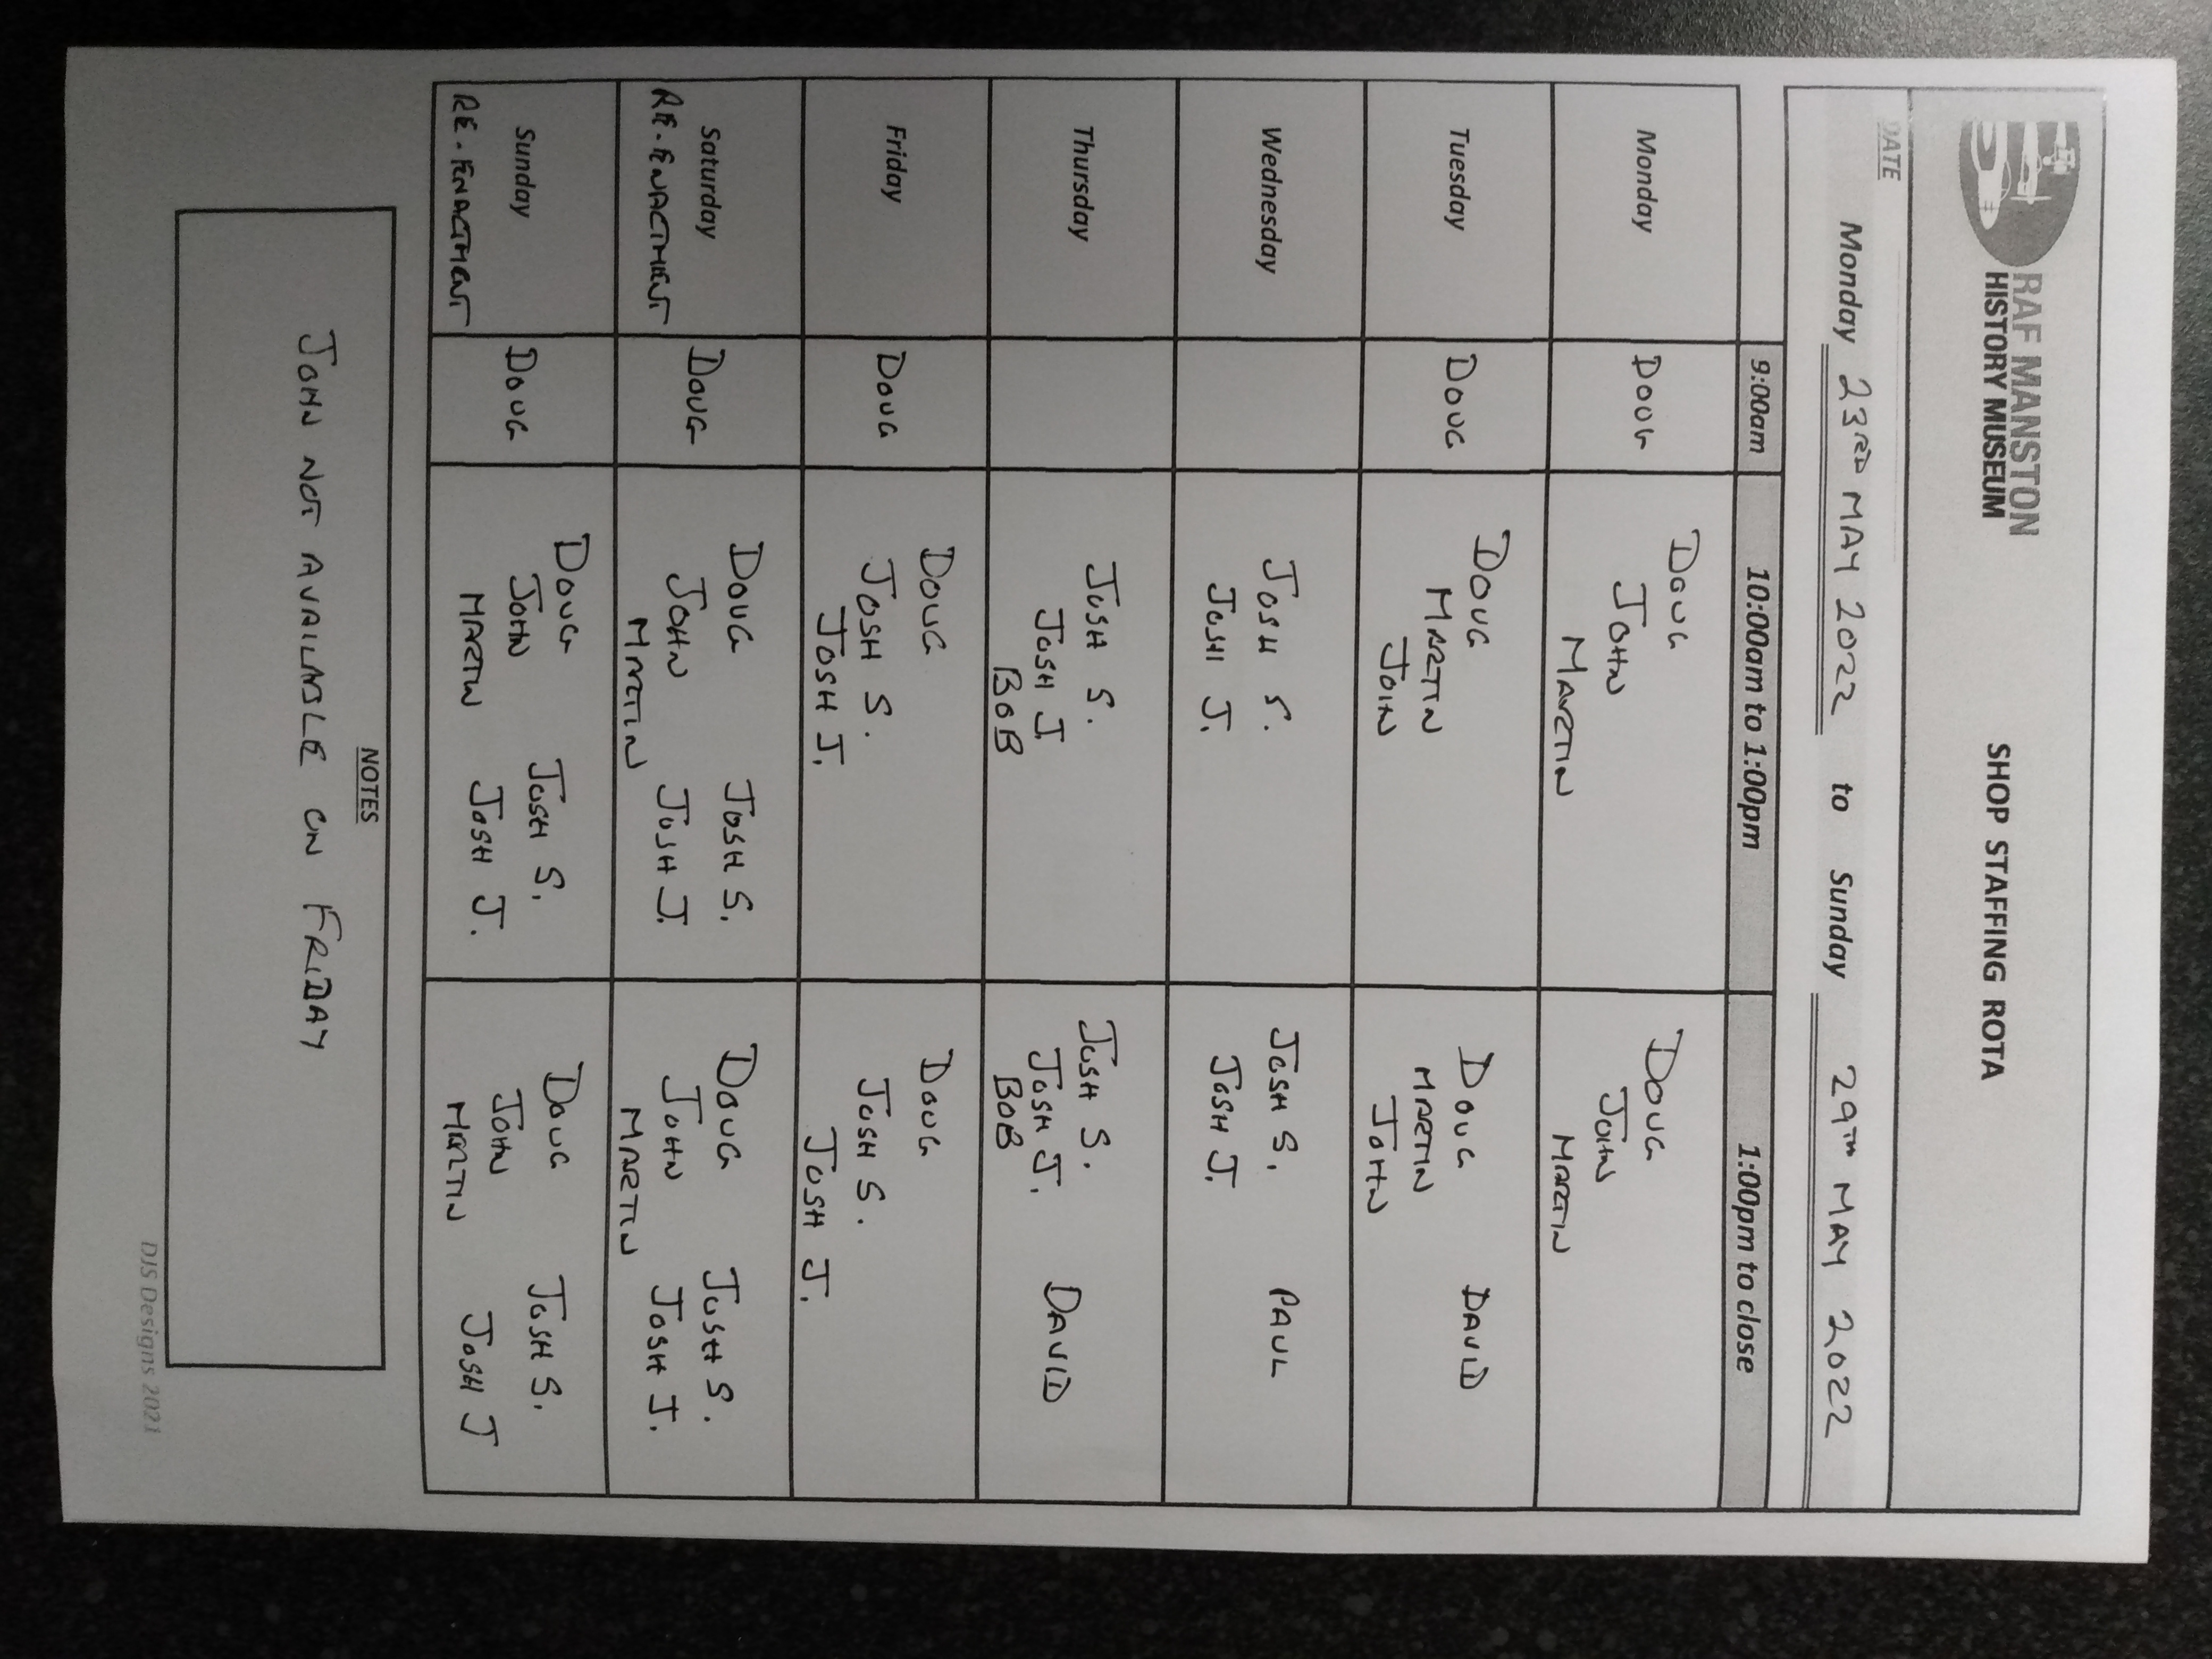 RAF MANSTON
HISTORY MUSEUM
SHOP STAFFING ROTA
DATE
Monday 23RD MAY 2022 to Sunday 29TH MAY 2022
9:00am 10:00am to 1:00pm 1:00pm to close
Monday
DOUG
DOUG
JOHN
MARTIN
DOUG
JOHN
MARTIN
Tuesday
DOUG
DOUG
MARTIN
JOHN
DOUG DAVID
MARTIN
JOHN
Wednesday
JOSH S.
JOSH J.
JOSH S. PAUL
JOSH J.
Thursday
JOSH S.
JOSH J.
BOB
JOSH S.
JOSH J. DAVID
BOB
Friday
DOUG
DOUG
JOSH S.
JOSH J.
DOUG
JOSH S.
JOSH J.
Saturday
RE-ENACTMENT
DOUG
DOUG JOSH S.
JOHN JOSH J.
MARTIN
DOUG JOSH S.
JOHN JOSH J.
MARTIN
Sunday
RE-ENACTMENT
DOUG
DOUG JOSH S.
JOHN
MARTIN JOSH J.
DOUG JOSH S.
JOHN
MARTIN JOSH J
NOTES
JOHN NOT AVAILABLE ON FRIDAY
DJS Designs 2021